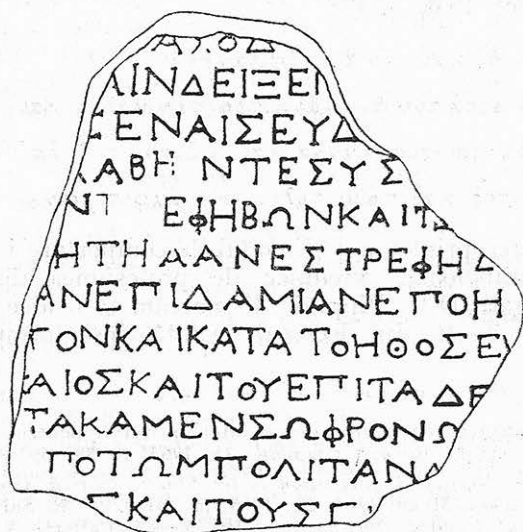 ΙΝΔΕΙΞΕΙ
ΕΝΑΙΣΕΥΔ
ΑΒΗ ΝΤΕΣΥΣ
ΕΦΗΒΩΝΚΑΙΤ
ΗΤΗΛΑΝΕΣΤΡΕΦΗΔ
ΑΝΕΠΙΔΑΜΙΑΝΕΠΟΗ
ΓΟΝΚΑΙΚΑΤΑΤΟΗΘΟΣΕΥ
ΑΙΟΣΚΑΙΤΟΥΕΠΙΤΑΔΕ
ΤΑΚΑΜΕΝΣΩΦΡΟΝΩ
ΠΟΤΩΜΠΟΛΙΤΑΝΔ
ΚΑΙΤΟΥΣΓ